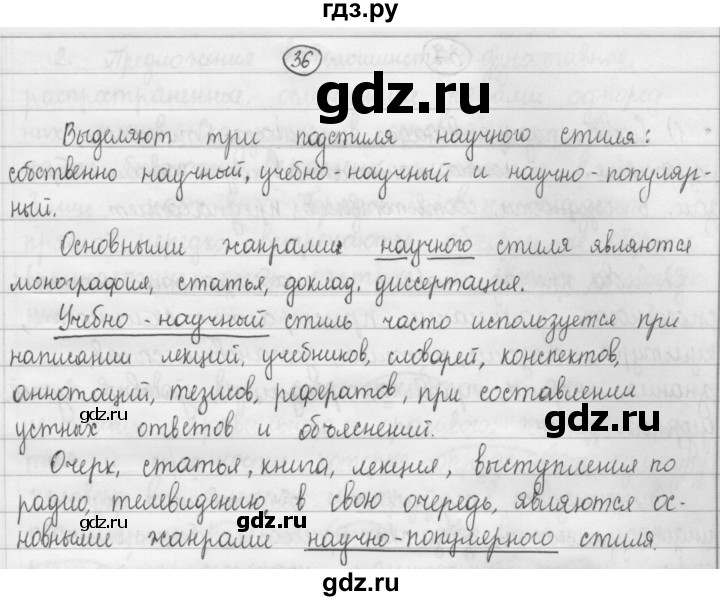 гдз.ру
36
gdz.ru
Выделяют три подстиля научного стиля:
собственно научный, учебно-научный и научно-популяр-
ный.
Основными жанрами научного стиля являются
монография, статья, доклад, диссертация.
Учебно-научный стиль часто используется при
написании лекций, учебников, словарей, конспектов,
gdz.ru
аннотаций, тезисов, рефератов, при составлении
gdz.ru
gdz.ru
устных ответов и объяснений.
gdz.ru
Очерк, статья, книга, лекция, выступления по
радио, телевидению, в свою очередь, являются ос-
gdz.ru
gdz.ru
новными жанрами научно-популярного стиля.
gdz.ru